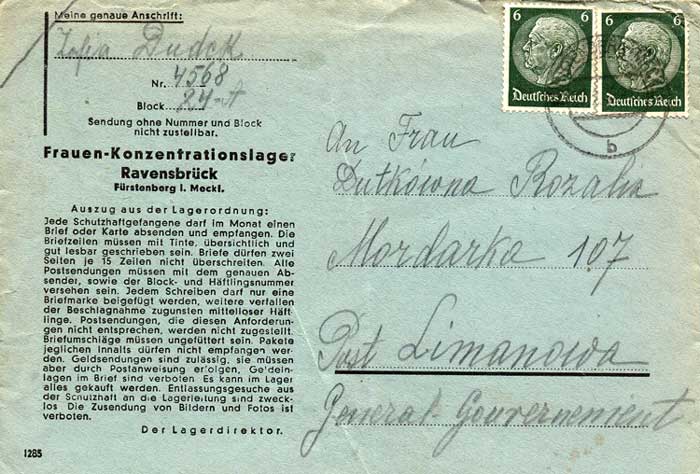 Meine genaue Anschrift:
Zofia Dudek
Nr. 4568
Block 24-A
Sendung ohne Nummer und Block
nicht zustellbar.
Frauen-Konzentrationslager
Ravensbrück
Fürstenberg i. Meckl.
Auszug aus der Lagerordnung:
Jede Schutzhaftgefangene darf im Monat einen
Brief oder Karte absenden und empfangen. Die
Briefzeilen müssen mit Tinte, übersichtlich und
gut lesbar geschrieben sein. Briefe dürfen zwei
Seiten je 15 Zeilen nicht überschreiten. Alle
Postsendungen müssen mit dem genauen Ab-
sender, sowie der Block- und Häftlingsnummer
versehen sein. Jedem Schreiben darf nur eine
Briefmarke beigefügt werden, weitere verfallen
der Beschlagnahme zugunsten mittelloser Häft-
linge. Postsendungen, die diesen Anforderun-
gen nicht entsprechen, werden nicht zugestellt.
Briefumschläge müssen ungefüttert sein. Pakete
jeglichen Inhalts dürfen nicht empfangen wer-
den. Geldsendungen sind zulässig, sie müssen
aber durch Postanweisung erfolgen, Geldein-
lagen im Brief sind verboten. Es kann im Lager
alles gekauft werden. Entlassungsgesuche aus
der Schutzhaft an die Lagerleitung sind zweck-
los. Die Zusendung von Bildern und Fotos ist
verboten.
Der Lagerdirektor.
1285
6 6
Deutsches Reich
6 6
Deutsches Reich
b
An Frau
Dutkówna Rozalia
Mordarka 107
Post Limanowa
General-Gouvernement